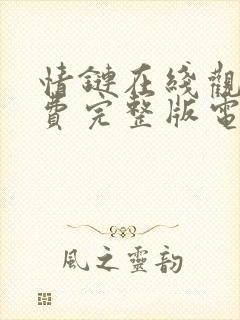 情鏈在綫觀
費完整版電
風之靈韵